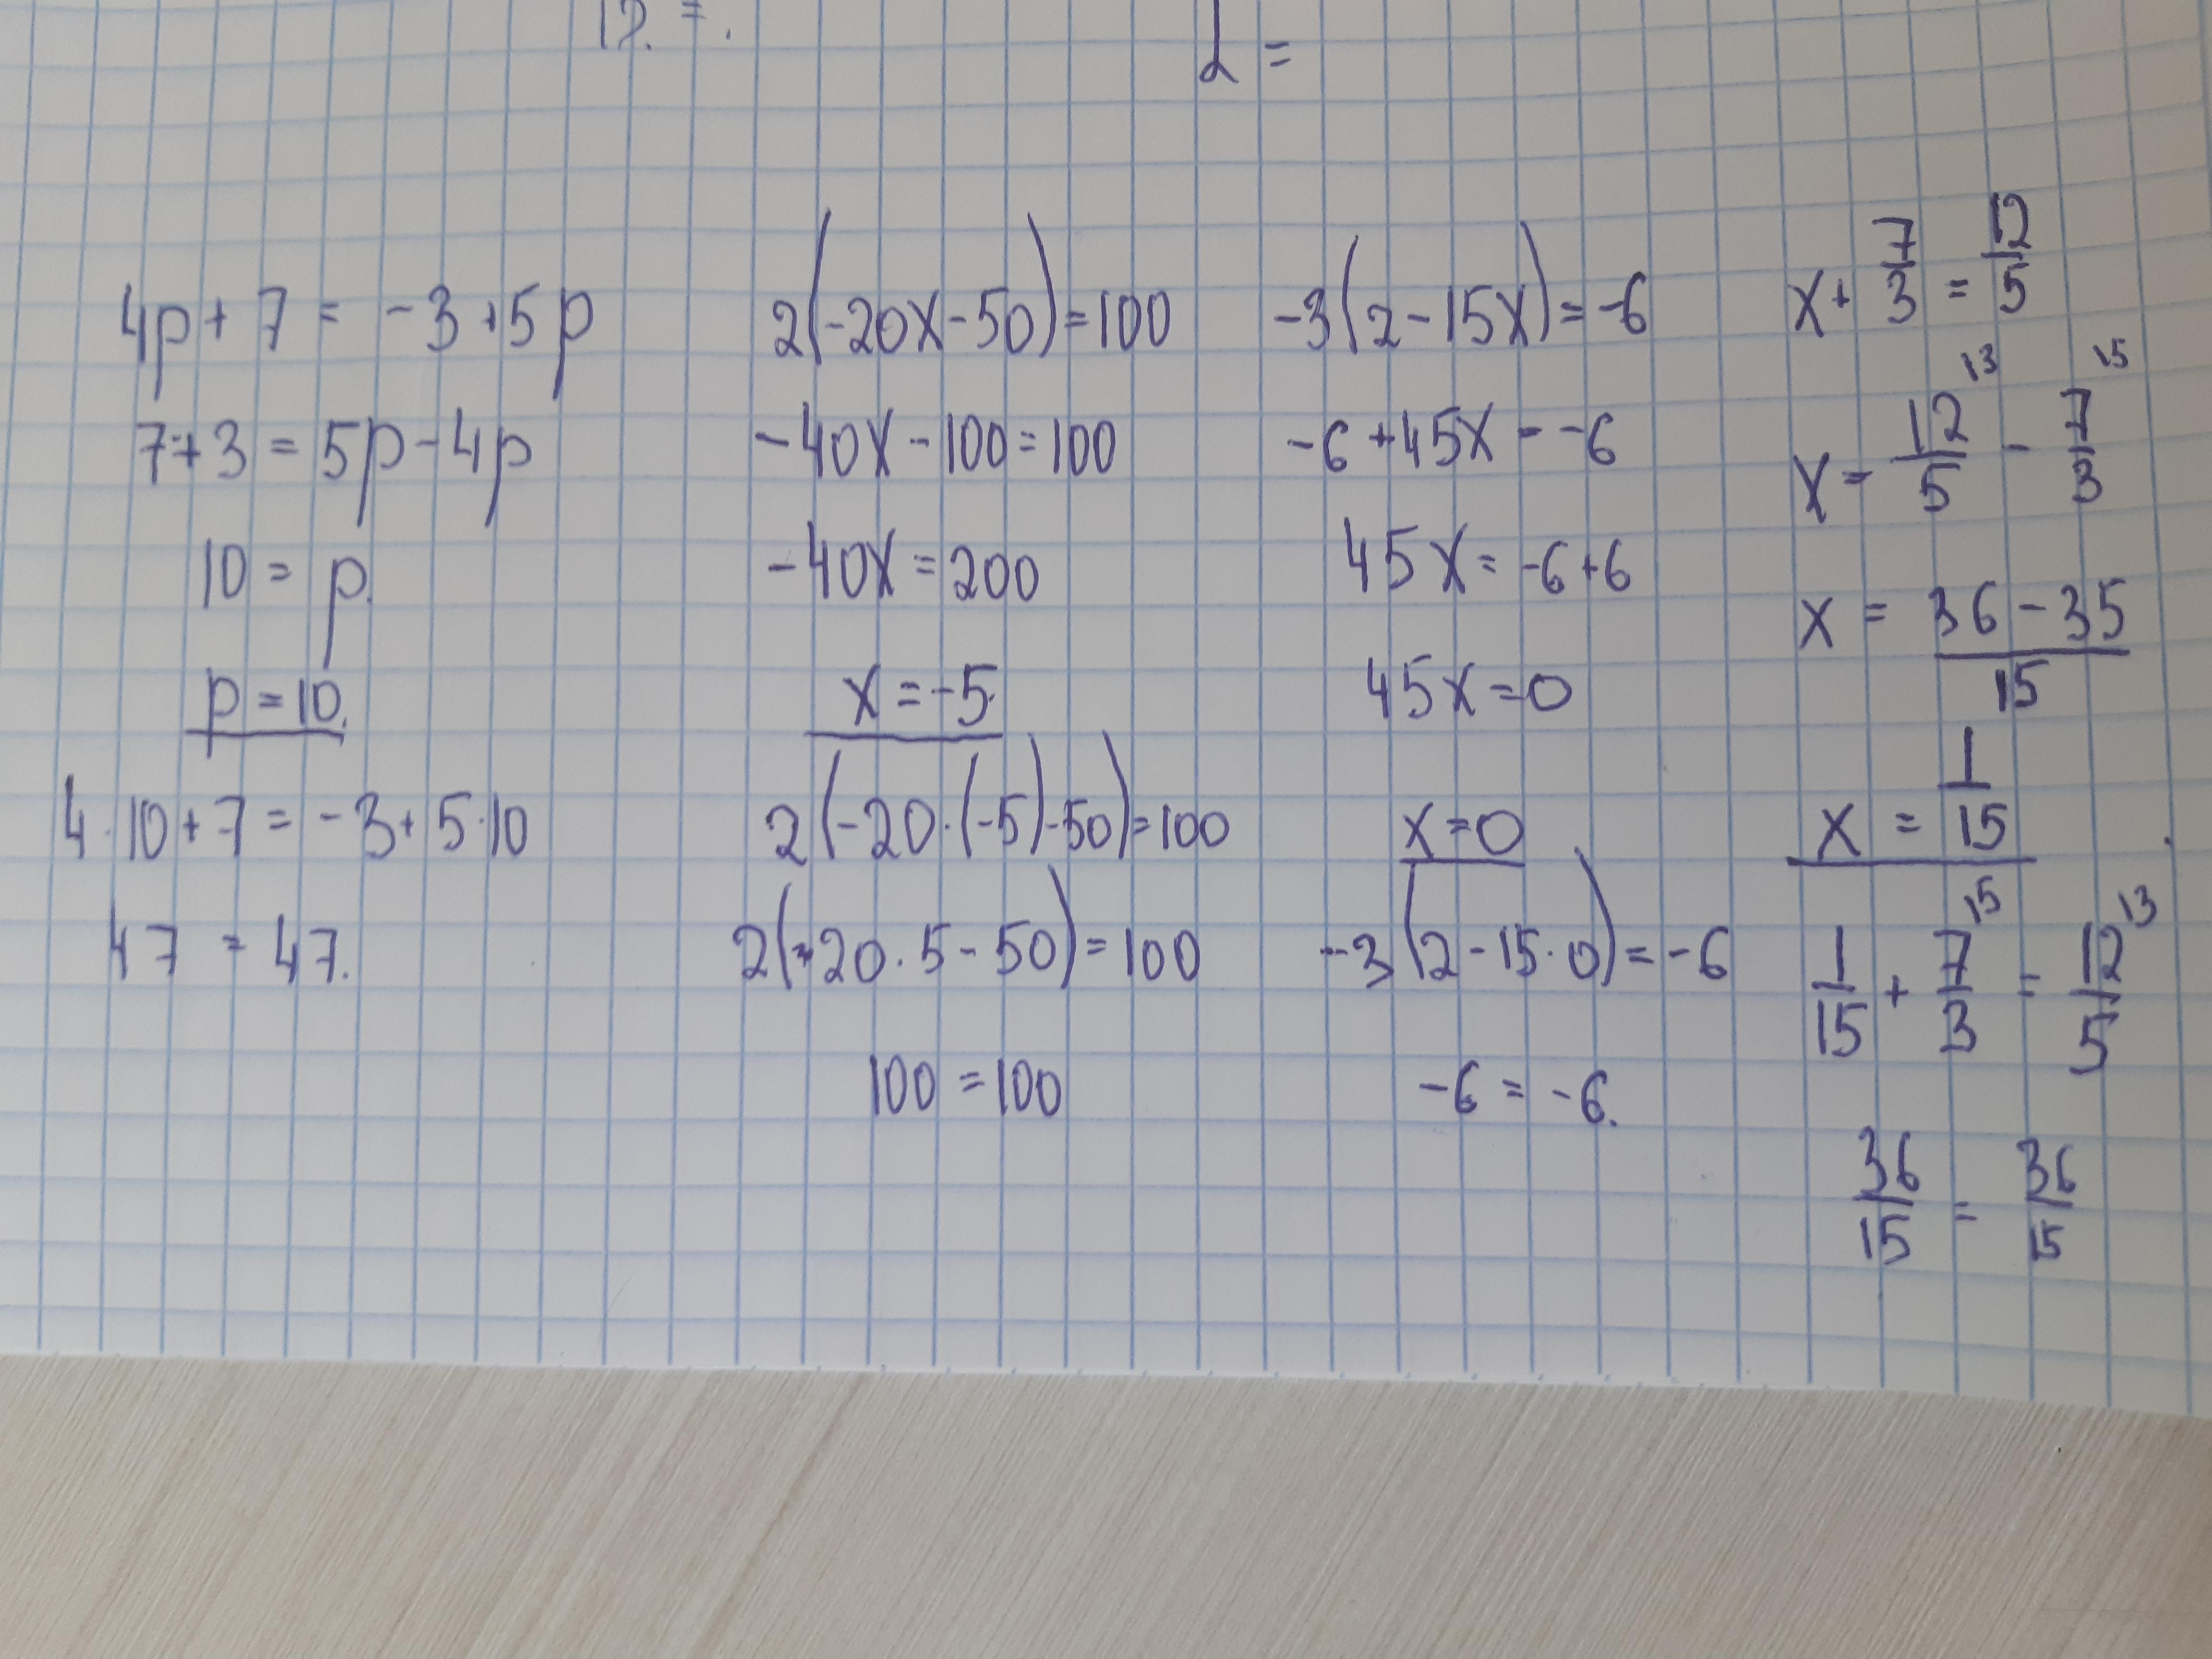 2 =
4p + 7 = -3 + 5p
7 + 3 = 5p - 4p
10 = p.
p = 10.
4 · 10 + 7 = -3 + 5 · 10
47 = 47.
2(-20x - 50) = 100
-40x - 100 = 100
-40x = 200
x = -5.
2(-20 · (-5) - 50) = 100
2(+20 · 5 - 50) = 100
100 = 100
-3(2 - 15x) = -6
-6 + 45x = -6
45x = -6 + 6
45x = 0
x = 0
-3(2 - 15 · 0) = -6
-6 = -6.
x + 7/3 = 12/5
x = 12/5 ^13 - 7/3 ^15
x = 36 - 35 / 15
x = 1/15
1/15 + 7/3 ^15 = 12/5 ^13
36/15 = 36/15